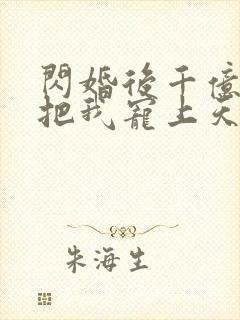 閃婚後千億
把我寵上天
朱海生